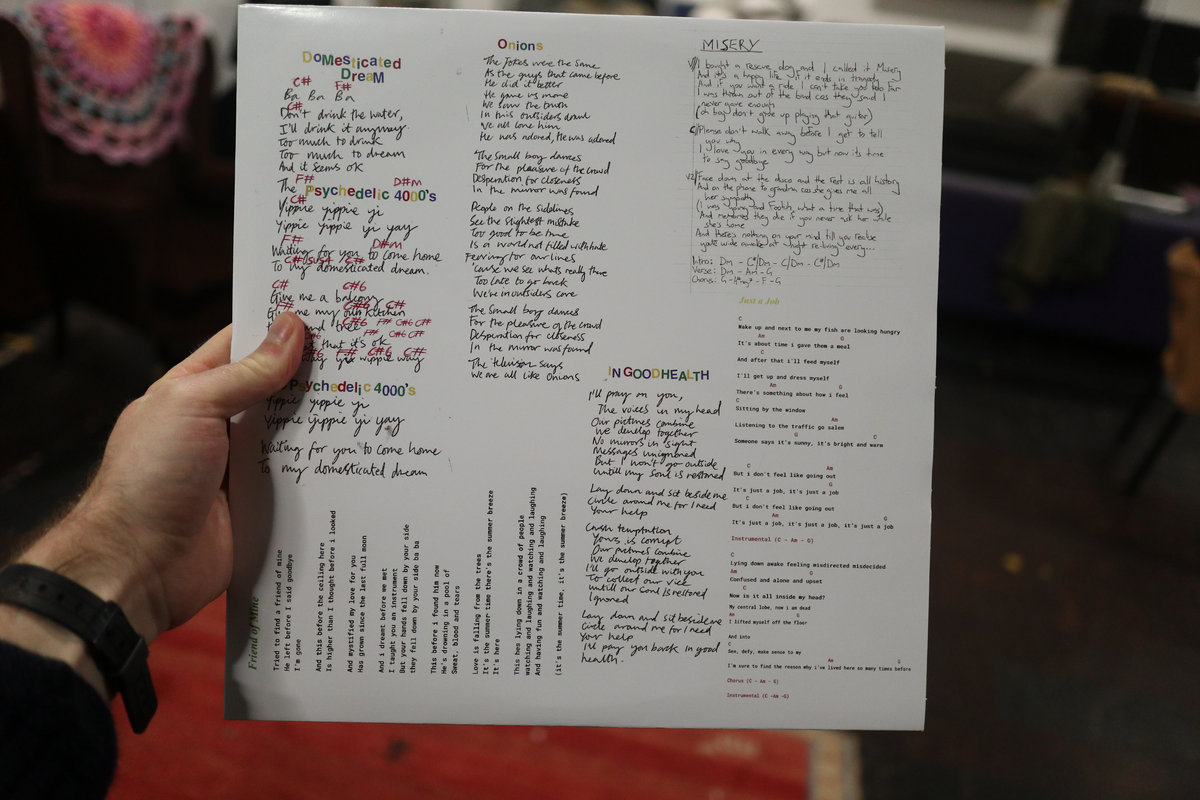 Domesticated
Dream
C# F#
Ba Ba Ba
C#
Don't drink the water,
I'll drink it anyway.
Too much to drink
Too much to dream
And it seems ok
F# D#m
The Psychedelic 4000's
C#
Yippie yippie yi
Yippie yippie yi yay
F# D#m
Waiting for you to come home
C#sus4 C#
To my domesticated dream.
C# C#6
Give me a balcony
F# C#6 C#
Give me my own kitchen
C#6 F# C#6 C#
and tree
F# C#6 C#
that it's ok
F# C#6 C#
way yix wippie way
Psychedelic 4000's
Yippie yippie yi
Yippie yippie yi yay
Waiting for you to come home
To my domesticated dream
Onions
The Jokes were the same
As the guys that came before
He did it better
He gave us more
We saw the truth
In this outsiders
We all love him
He was adored, He was adored
The small boy dances
For the pleasure of the crowd
Desperation for closeness
In the mirror was found
People on the sidelines
See the slightest mistake
Too good to be true
Is a world not filled with hate
for our lines
'cause we see whats really there
Too late to go back
We're in outsiders care
The small boy dances
For the pleasure of the crowd
Desperation for closeness
In the mirror was found
The television says
We are all like onions
MISERY
V1) I bought a rescue dog and I called it Misery
And it's a happy life if it ends in tragedy
And if you want a ride I can't take you too far
I was thrown out of the band cos they said I
never gave enough
(oh boy don't give up playing that guitar)
C) Please don't walk away before I get to tell
you why
I love you in every way but now its time
to say goodbye
V2) Face down at the disco and the rest is all history
And on the phone to grandma cos she gives me all
her sympathy
(I was young and Foolish, what a time that was)
And memories they die if you never ask her while
she's home
And there's nothing on your mind till you realise
you're wide awake at night re-living every...
Intro: Dm - C#/Dm - C/Dm - C#/Dm
Verse: Dm - Am - G
Chorus: G - F - G
Just a Job
C
Wake up and next to me my fish are looking hungry
Am G
It's about time i gave them a meal
C
And after that i'll feed myself
I'll get up and dress myself
Am G
There's something about how i feel
C
Sitting by the window
Am
Listening to the traffic go salem
G C
Someone says it's sunny, it's bright and warm
C Am
But i don't feel like going out
G
It's just a job, it's just a job
C
But i don't feel like going out
Am G
It's just a job, it's just a job, it's just a job
Instrumental (C - Am - G)
C
Lying down awake feeling misdirected misdecided
Am G
Confused and alone and upset
C
Now is it all inside my head?
My central lobe, now i am dead
Am
I lifted myself off the floor
G
And into
C
See, defy, make sense to my
Am G
I'm sure to find the reason why i've lived here so many times before
Chorus (C - Am - G)
Instrumental (C -Am -G)
IN GOOD HEALTH
I'll pray on you,
The voices in my head
Our pictures combine
We develop together
No mirrors in sight
Messages unignored
But I won't go outside
Untill my soul is restored
Lay down and sit beside me
Circle around me for I need
Your help
Crush temptation
Yours is corrupt
Our pictures combine
We develop together
I'll go outside with you
To collect our vice
untill our soul is restored
Ignored
Lay down and sit beside me
Circle around me for I need
Your help
I'll pay you back in good
health.
Friend of Mine
Tried to find a friend of mine
He left before I said goodbye
I'm gone
And this before the ceiling here
Is higher than I thought before i looked
And mystified my love for you
Has grown since the last full moon
And i dreamt before we met
I taught you an instrument
But your hands fell down by your side
they fell down by your side ba ba
This before i found him now
He's drowning in a pool of
Sweat, blood and tears
Love is falling from the trees
It's the summer time there's the summer breeze
It's here
This hes lying down in a crowd of people
watching and laughing and watching and laughing
And having fun and watching and laughing
(it's the summer time, it's the summer breeze)